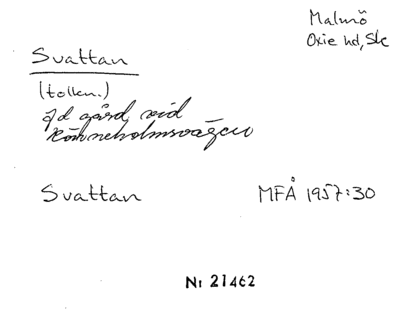 Malmö
Oxie hd, Sk
Svattan
(tolkn.)
fd gård vid
Rönneholmsvägen
Svattan MFÅ 1957:30
Nr 21462